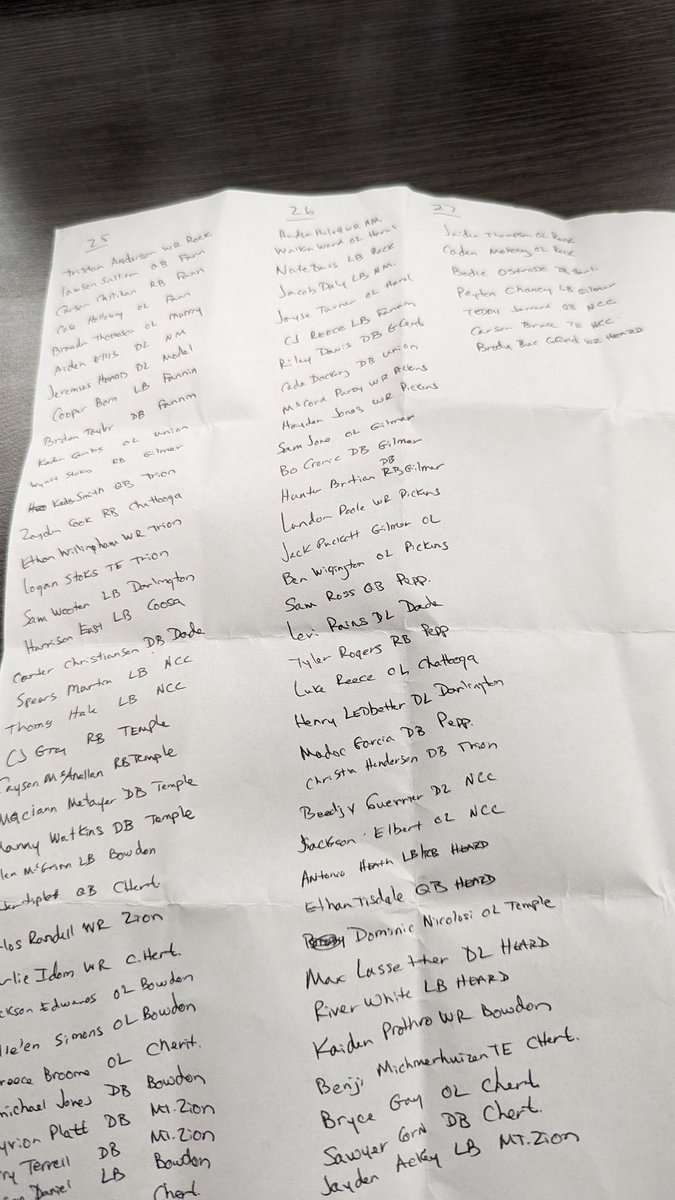 25
Tristan Anderson WR Rock
Lawson Sullivan QB Fann
Carson Callihan RB Fann
Holloway OL Fann
Brandon Thomason OL Murray
Aiden Ellis DL NM
Jeremias Heard DL Model
Cooper Born LB Fannin
Brodan Taylor DB Fannin
Kaden Combs OL Union
Wyatt Stoks RB Gilmer
Kade Smith QB Trion
Zayden Cook RB Chattooga
Ethan Willingham WR Trion
Logan Stoks TE Trion
Sam Wooten LB Darlington
Harrison East LB Coosa
Carter Christiansen DB Dade
Spears Martin LB NCC
Thomas Hale LB NCC
CJ Gray RB Temple
Cayson McAnallan RB Temple
Metayer DB Temple
Watkins DB Temple
LB Bowdon
QB Chert.
Randell WR Zion
Idom WR C.Hert.
Edwards OL Bowdon
Simons OL Bowdon
Broome OL Cherit.
michael Jones DB Bowdon
Platt DB MT. Zion
Terrell DB MT. Zion
Daniel LB Bowdon
Chert.
26
WR NM
Walker Ward OL Haral
Nate Davis LB Rock
Jacob Daly LB NM.
Jayse Turner OL Haral
CJ Reece LB Fannin
Riley Davis DB GCent
Cade Dockery DB Union
McCord Purdy WR Pickens
Hayden Jones WR Pickens
Sam Jone OL Gilmer
Bo Cronic DB Gilmer
DB
Hunter RB Gilmer
Landon Poole WR Pickens
Jack Puckett Gilmer OL
Ben Wigington OL Pickens
Sam Ross QB Pepp.
Levi Rains DL Dade
Tyler Rogers RB Pepp
Luke Reece OL Chattooga
Henry Ledbetter DL Darlington
Madoc Garcia DB Pepp.
Christin Henderson DB Trion
Guerrier DL NCC
Jackson Elbert OL NCC
Antonio Heath LB/RB HEARD
Ethan Tisdale QB HEARD
Dominic Nicolosi OL Temple
Max Lassetther DL HEARD
River White LB HEARD
Kaiden Prothro WR Bowdon
Benji Michmerhuizen TE CHert.
Bryce Gay OL Chert
Sawyer Corn DB Chert.
Jayden Ackey LB MT. Zion
27
Jaiden Thompson OL
Caden OL Rock
Peyton Chaney LB Gilmer
Teddy Jarrard QB NCC
Carson Bruce TE NCC
WR HEARD